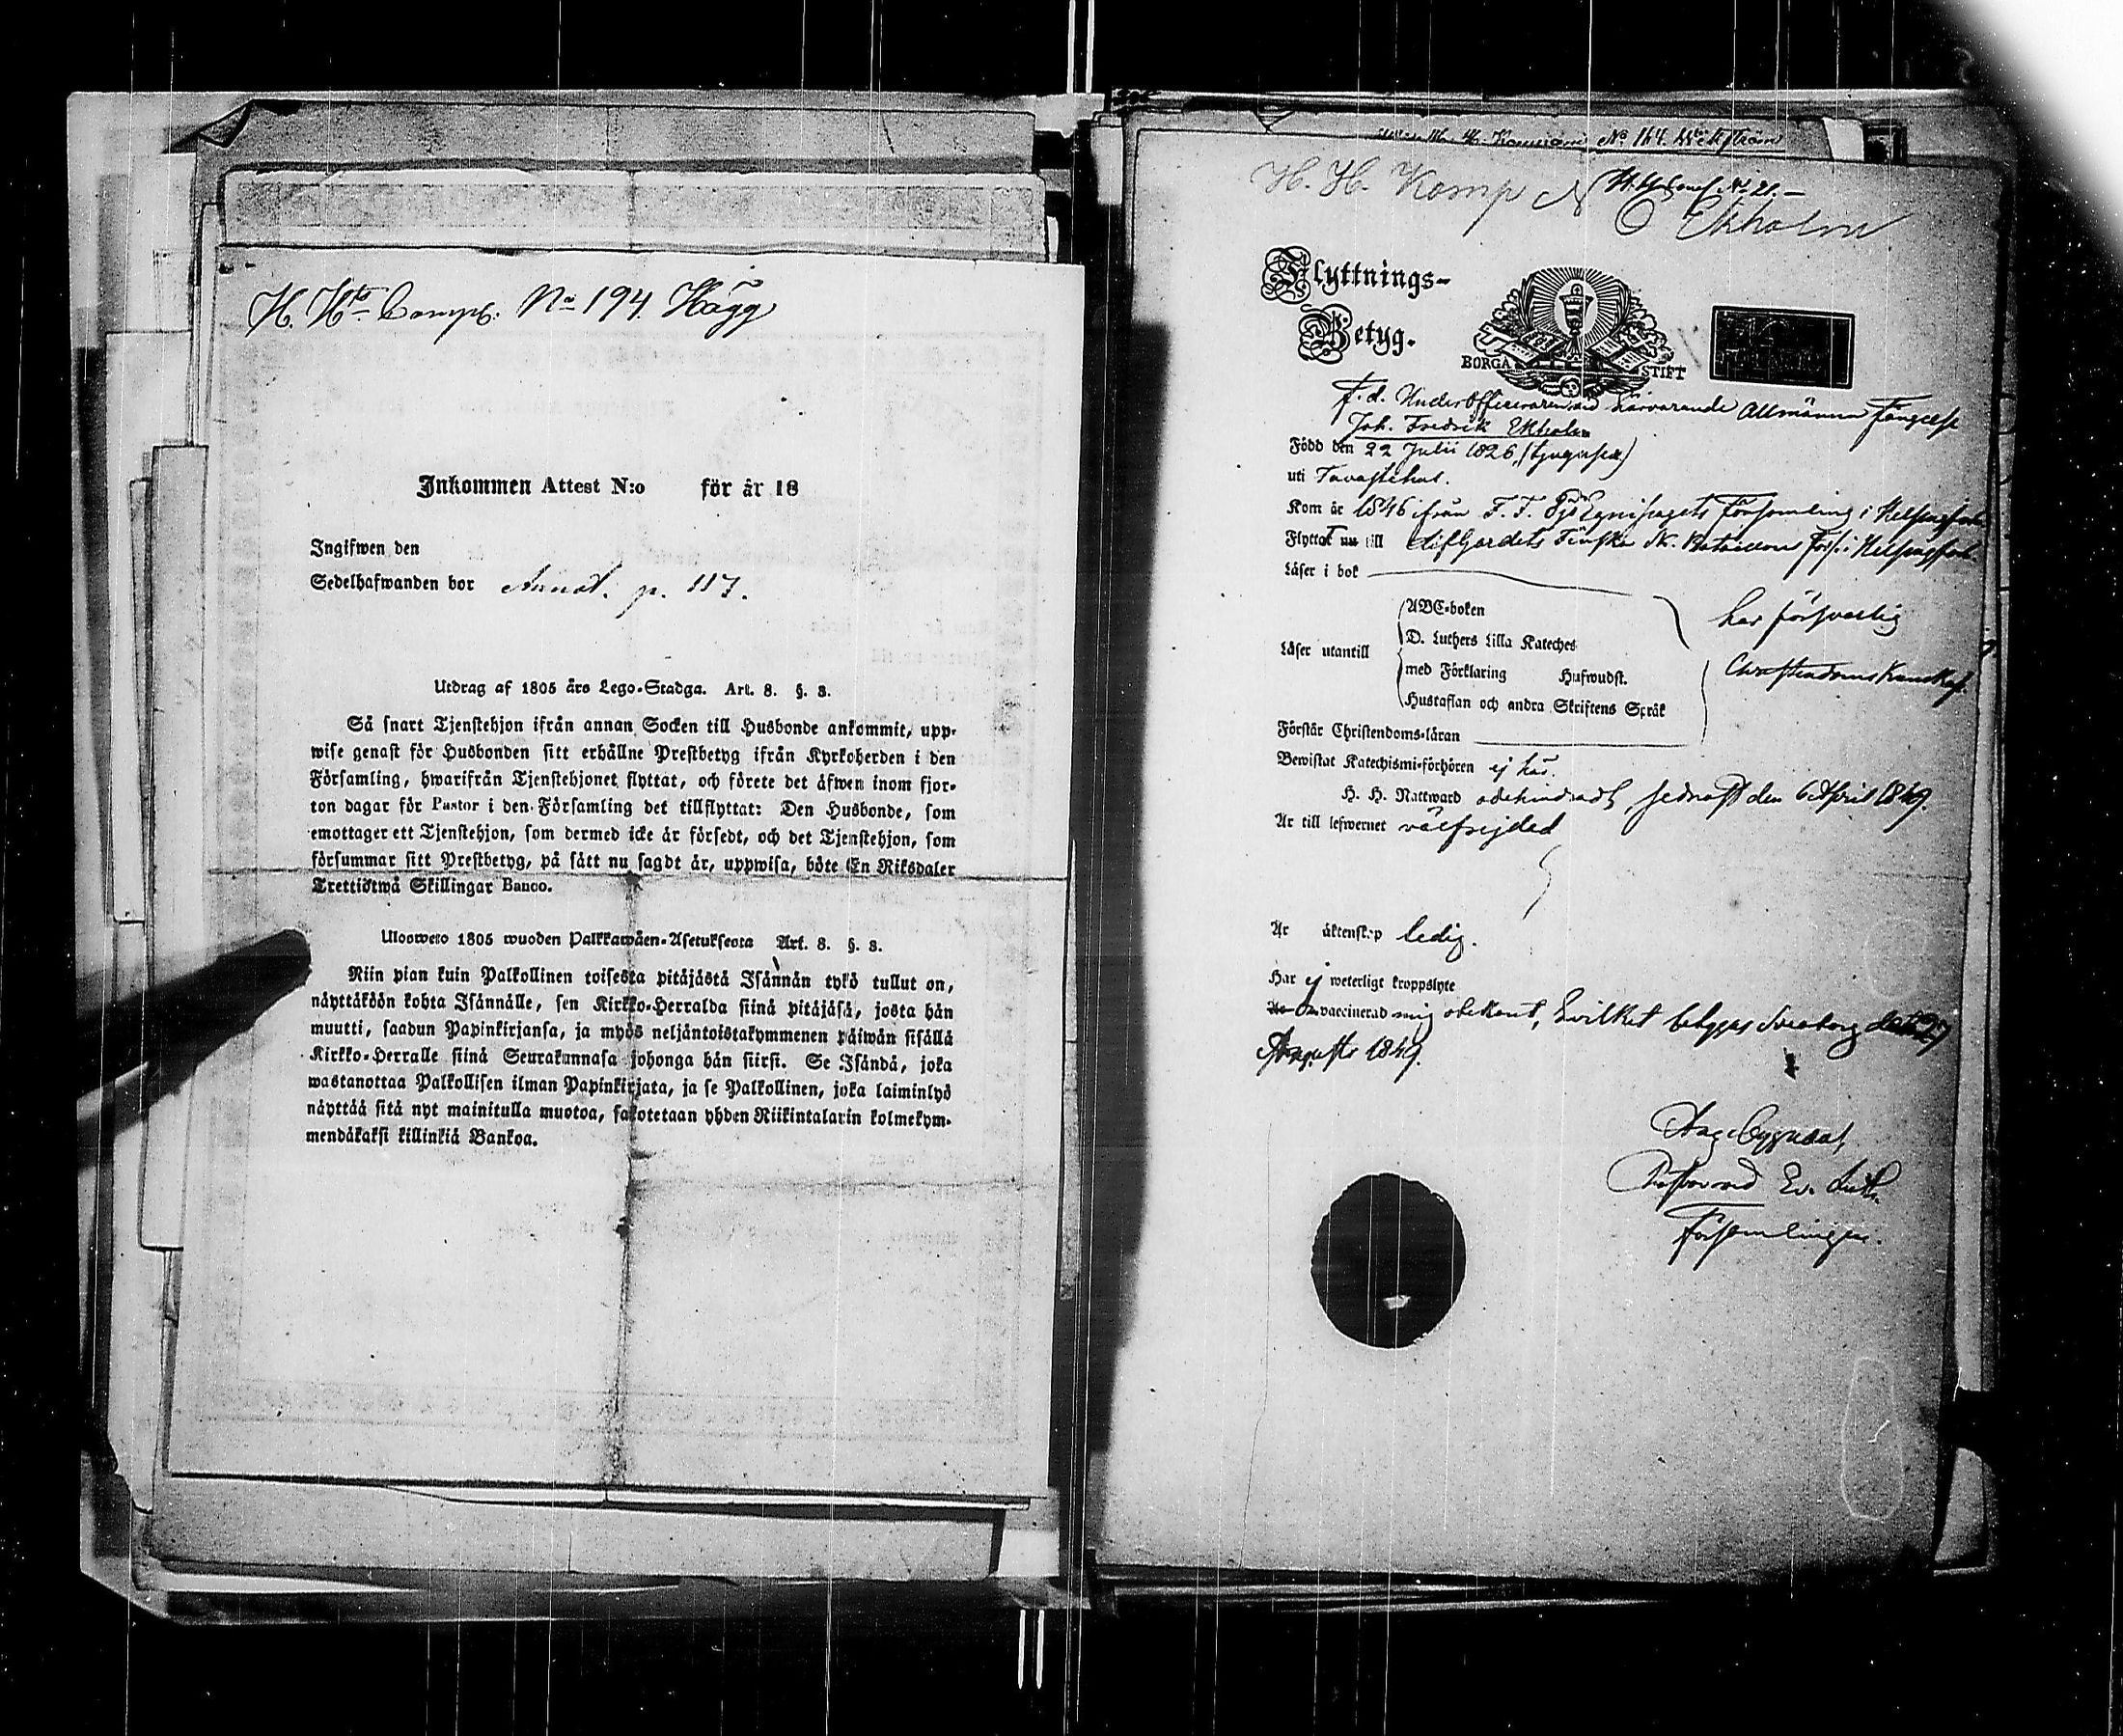 H. Hts Comp. No 194 Hägg
Inkommen Attest N:o för år 18
Ingifwen den
Sedelhafwanden bor Annot. p. 117.
Utdrag af 1805 års Lego-Stadga. Art. 8. §. 3.
Så snart Tjenstehjon ifrån annan Socken till Husbonde ankommit, upp-
wise genast för Husbonden sitt erhållne Prestbetyg ifrån Kyrkoherden i den
Församling, hwarifrån Tjenstehjonet flyttat, och förete det åfwen inom fjor-
ton dagar för Pastor i den Församling det tillflyttat: Den Husbonde, som
emottager ett Tjenstehjon, som dermed icke är försedt, och det Tjenstehjon, som
försummar sitt Prestbetyg, på sätt nu sagdt är, uppwisa, böte En Riksdaler
Trettiotwå Skillingar Banco.
Ulosweto 1805 wuoden Palkkawäen-Asetuksesta Art. 8. §. 3.
Niin pian kuin Palkollinen toisesta pitäjästä Isännän tykö tullut on,
näyttäköön kohta Isännälle, sen Kirkko-Herralda siinä pitäjäsä, josta hän
muutti, saadun Papinkirjansa, ja myös neljäntoistakymmenen päiwän sisällä
Kirkko-Herralle siinä Seurakunnasa johonga hän siirsi. Se Isändä, joka
wastanottaa Palkollisen ilman Papinkirjata, ja se Palkollinen, joka laiminlyö
näyttää sitä nyt mainitulla muotoa, sakotetaan yhden Riikintalarin kolmekym-
mendäkaksi killinkiä Bankoa.
No 164. Wickström
H. H. Komp No 21.
Ekholm
Flyttnings-
Betyg.
BORGÅ STIFT
F. d. Underofficeraren vid härvarande Allmänna Fängelse
Joh. Fredrik Ekholm
Född den 22 Julii 1826, (tjugusex)
uti Tavastehus.
Kom år 1846 ifrån F. F. Sjö Equipagets Församling i Helsingfors
Flyttat nu till Lifgardets Finska Sk. Bataillons Förs. i Helsingfors
Läser i bok
Läser utantill
ABC-boken
D. Luthers Lilla Kateches
med Förklaring Hufwudst.
Hustaflan och andra Skriftens Språk
har försvarlig
Christendoms Kunskap.
Förstår Christendoms-läran
Bewistat Katechismi-förhören ej här.
H. H. Nattward obehindradt sednast den 6 April 1849.
Är till lefwernet välfrejdad
Är äktenskap ledig.
Har ej weterligt kroppslyte
Om vaccinerad mig obekant, hvilket betygas Sveaborg den 27
Augusti 1849.
Aug. Cygnaeus,
Pastor vid Ev. Luth.
Församlingen.